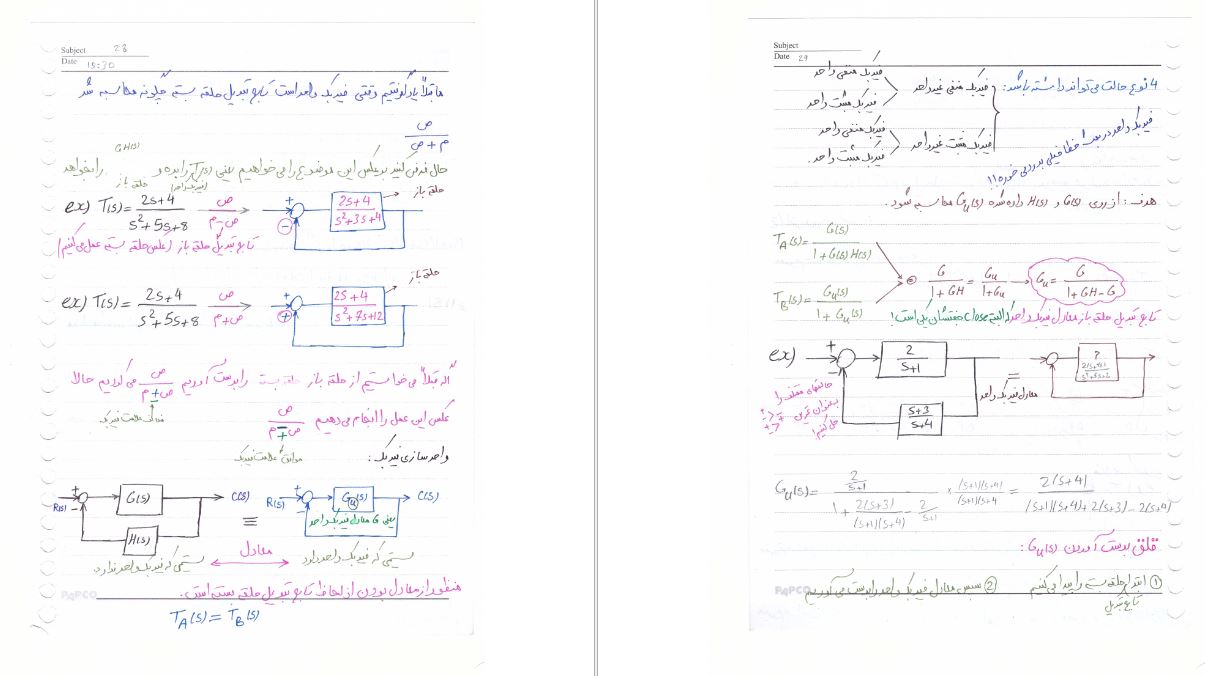 Subject 28
Date 15:30
ما قبلاً یاد گرفتیم وقتی فیدبک واحد است تابع تبدیل حلقه بسته چگونه محاسبه شد
ص
م + ص
حال فرض کنید برعکس این موضوع را می خواهیم یعنی T(s) را بده و G H(s) را بخواهد
ex) T(s) = 2s+4 / s²+5s+8
ص / م-ص
+
−
2s+4 / s²+3s+4
حلقه باز
تابع تبدیل حلقه باز (عکس حلقه بسته عمل می کنیم)
ex) T(s) = 2s+4 / s²+5s+8
ص / م+ص
+
+
2s+4 / s²+7s+12
حلقه باز
قبلاً می خواستیم از حلقه باز حلقه بسته را بدست آوریم ص / م±ص می کردیم حالا
عکس این عمل را انجام می دهیم ص / م∓ص
موافق علامت فیدبک
واحد سازی فیدبک :
R(s) + − G(s) C(s)
H(s)
≡
R(s) + − Gu(s) C(s)
یعنی G معادل فیدبک واحد
سیستمی که فیدبک واحد ندارد
معادل
سیستمی که فیدبک واحد دارد
منظور از معادل بودن از لحاظ تابع تبدیل حلقه بسته است.
PAPCO
TA(s) = TB(s)
Subject
Date 29
4 نوع حالت می تواند داشته باشد:
فیدبک منفی غیر واحد
فیدبک منفی واحد
فیدبک مثبت واحد
فیدبک مثبت غیر واحد
فیدبک منفی واحد
فیدبک مثبت واحد.
فیدبک واحد در بحث خطا خیلی بدرد می خوره!!
هدف: از روی G(s) و H(s) داده شده Gu(s) محاسبه شود.
TA(s) = G(s) / 1+G(s)H(s)
TB(s) = Gu(s) / 1+Gu(s)
G / 1+GH = Gu / 1+Gu → Gu = G / 1+GH-G
تابع تبدیل حلقه باز معادل فیدبک واحد که البته close جفتشان یکی است!
ex)
+
−
2 / s+1
s+3 / s+4
=
معادل فیدبک واحد
?
حالتهای مختلف را
بعنوان تمرین
حل کنیم!
Gu(s) = 2/s+1 / 1 + 2(s+3)/(s+1)(s+4) − 2/s+1 × (s+1)(s+4)/(s+1)(s+4) = 2(s+4) / (s+1)(s+4)+2(s+3)−2(s+4)
فلق بدست آمدن Gu(s) :
① ابتدا حلقه بسته را پیدا می کنیم
تابع تبدیل
② سپس معادل فیدبک واحد را بدست می آوریم
PAPCO